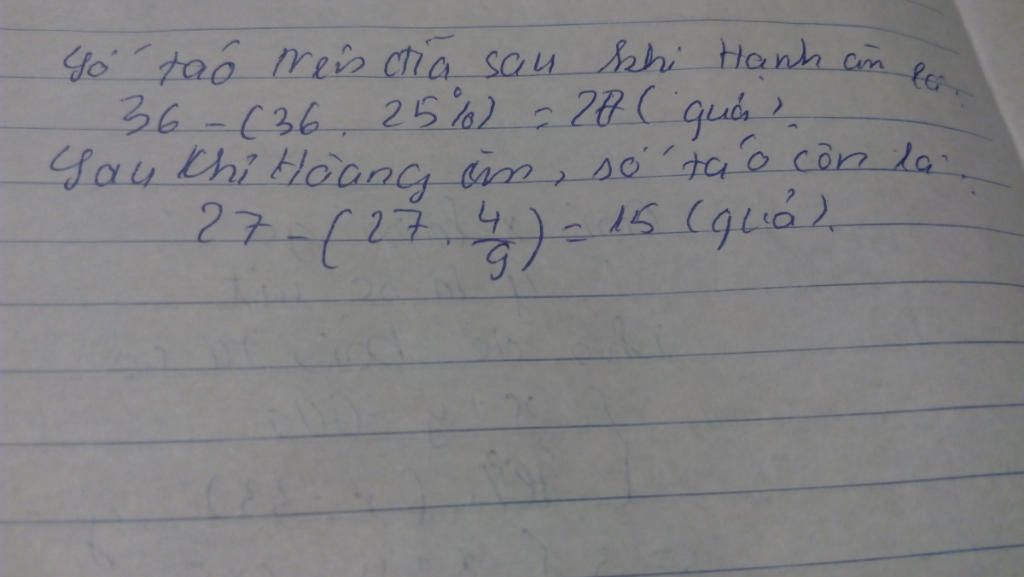 Số táo trên đĩa sau khi Hạnh ăn là:
36 - (36 . 25%) = 27 (quả).
Sau khi Hoàng ăn, số táo còn lại:
27 - (27 . 4/9) = 15 (quả).